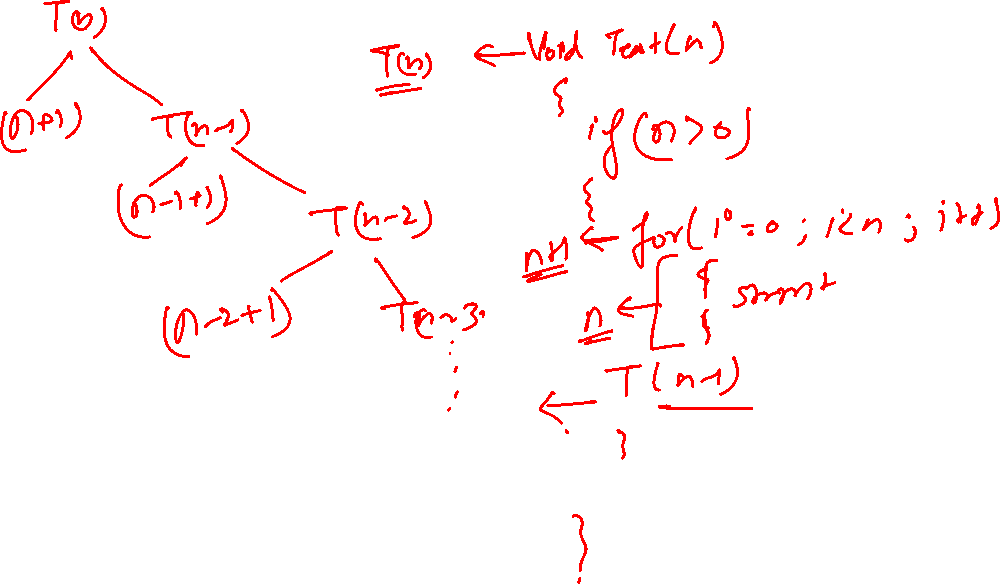 T(n)
(n+1)
T(n-1)
(n-1+1)
T(n-2)
(n-2+1)
T(n-3
T(n) ← Void Test(n)
{
if(n>0)
{
n+1 ← for(i=0; i<n; i++)
n ← { stmt
}
← T(n-1)
}
}